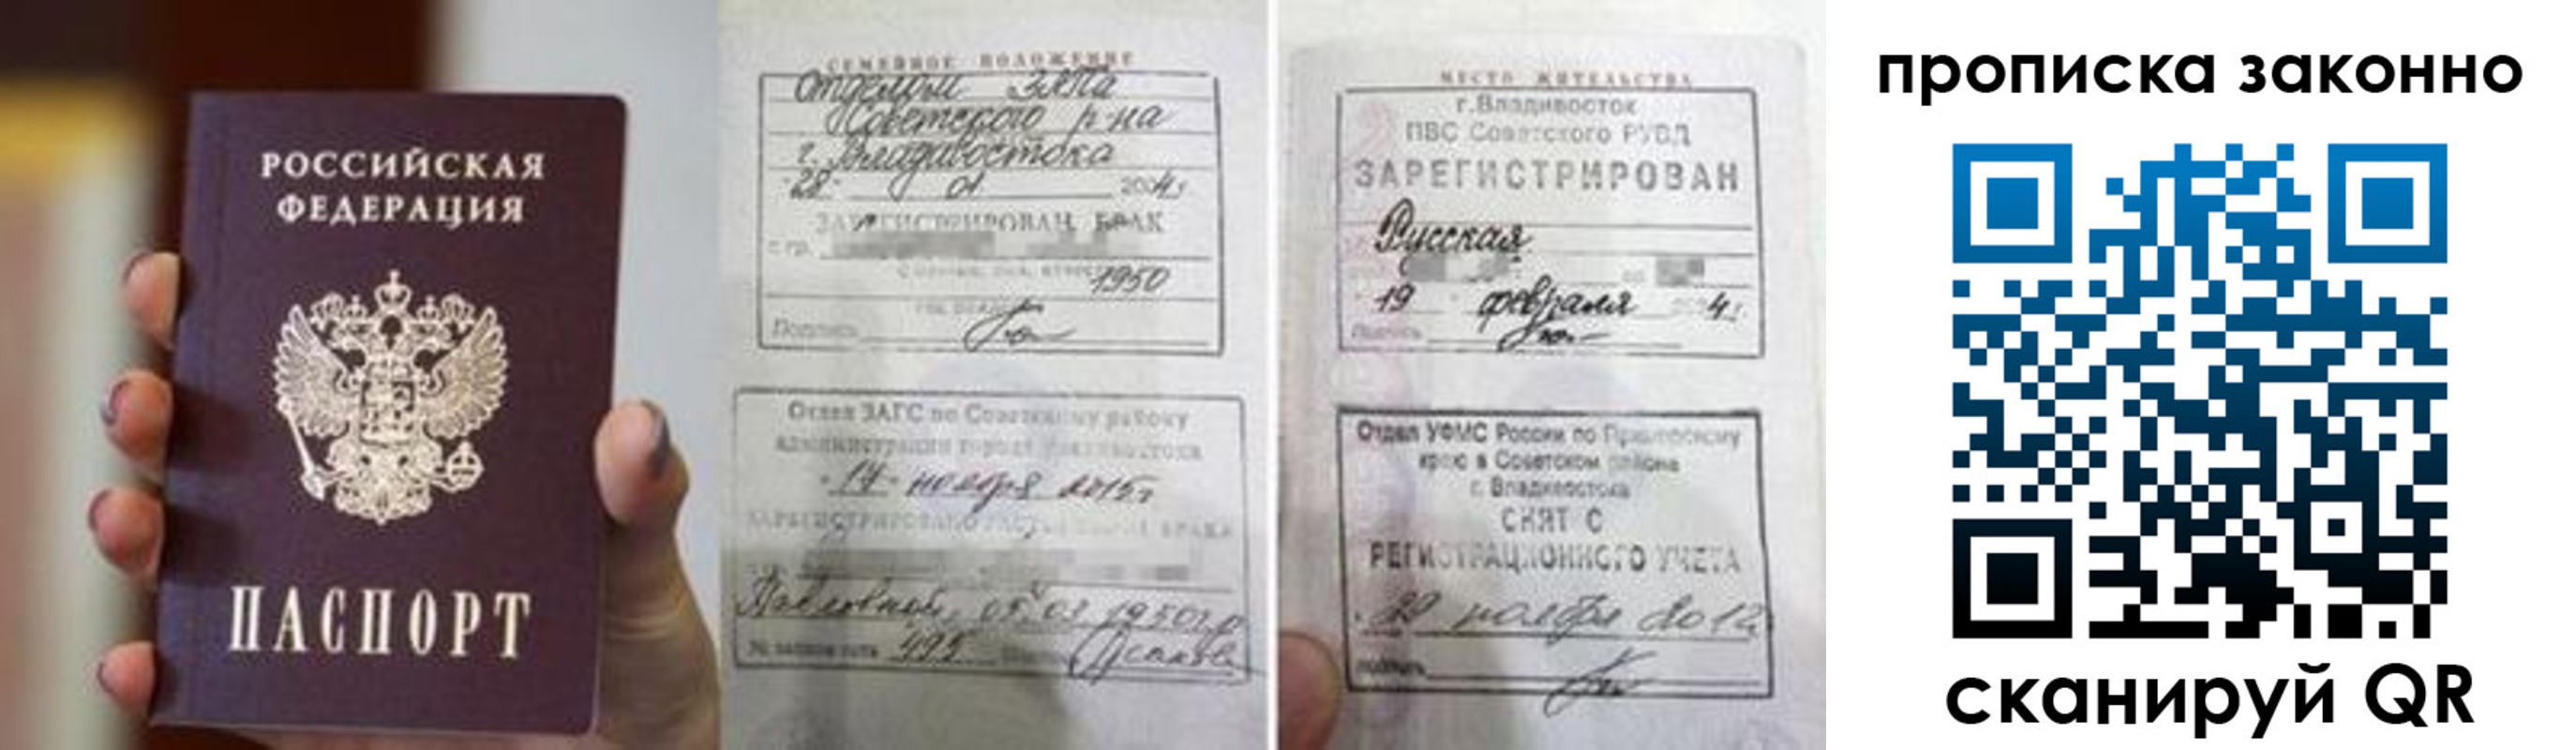 РОССИЙСКАЯ
ФЕДЕРАЦИЯ
ПАСПОРТ
СЕМЕЙНОЕ ПОЛОЖЕНИЕ
Отделом ЗАГСа
Советского р-на
г. Владивостока
"28" 01 2004г.
ЗАРЕГИСТРИРОВАН БРАК
с гр.
1950
Подпись
Отдел ЗАГС по Советскому району
администрации города Владивостока
"17" ноября 2015г
ЗАРЕГИСТРИРОВАНО РАСТОРЖЕНИЕ БРАКА
Павловной, 05.03.1950г.р
№ записи акта 495
МЕСТО ЖИТЕЛЬСТВА
г.Владивосток
ПВС Советского РУВД
ЗАРЕГИСТРИРОВАН
Русская
19 февраля 4г
Подпись
Отдел УФМС России по Приморскому
краю в Советском районе
г. Владивостока
СНЯТ С
РЕГИСТРАЦИОННОГО УЧЕТА
ноября 2012
подпись
прописка законно
сканируй QR